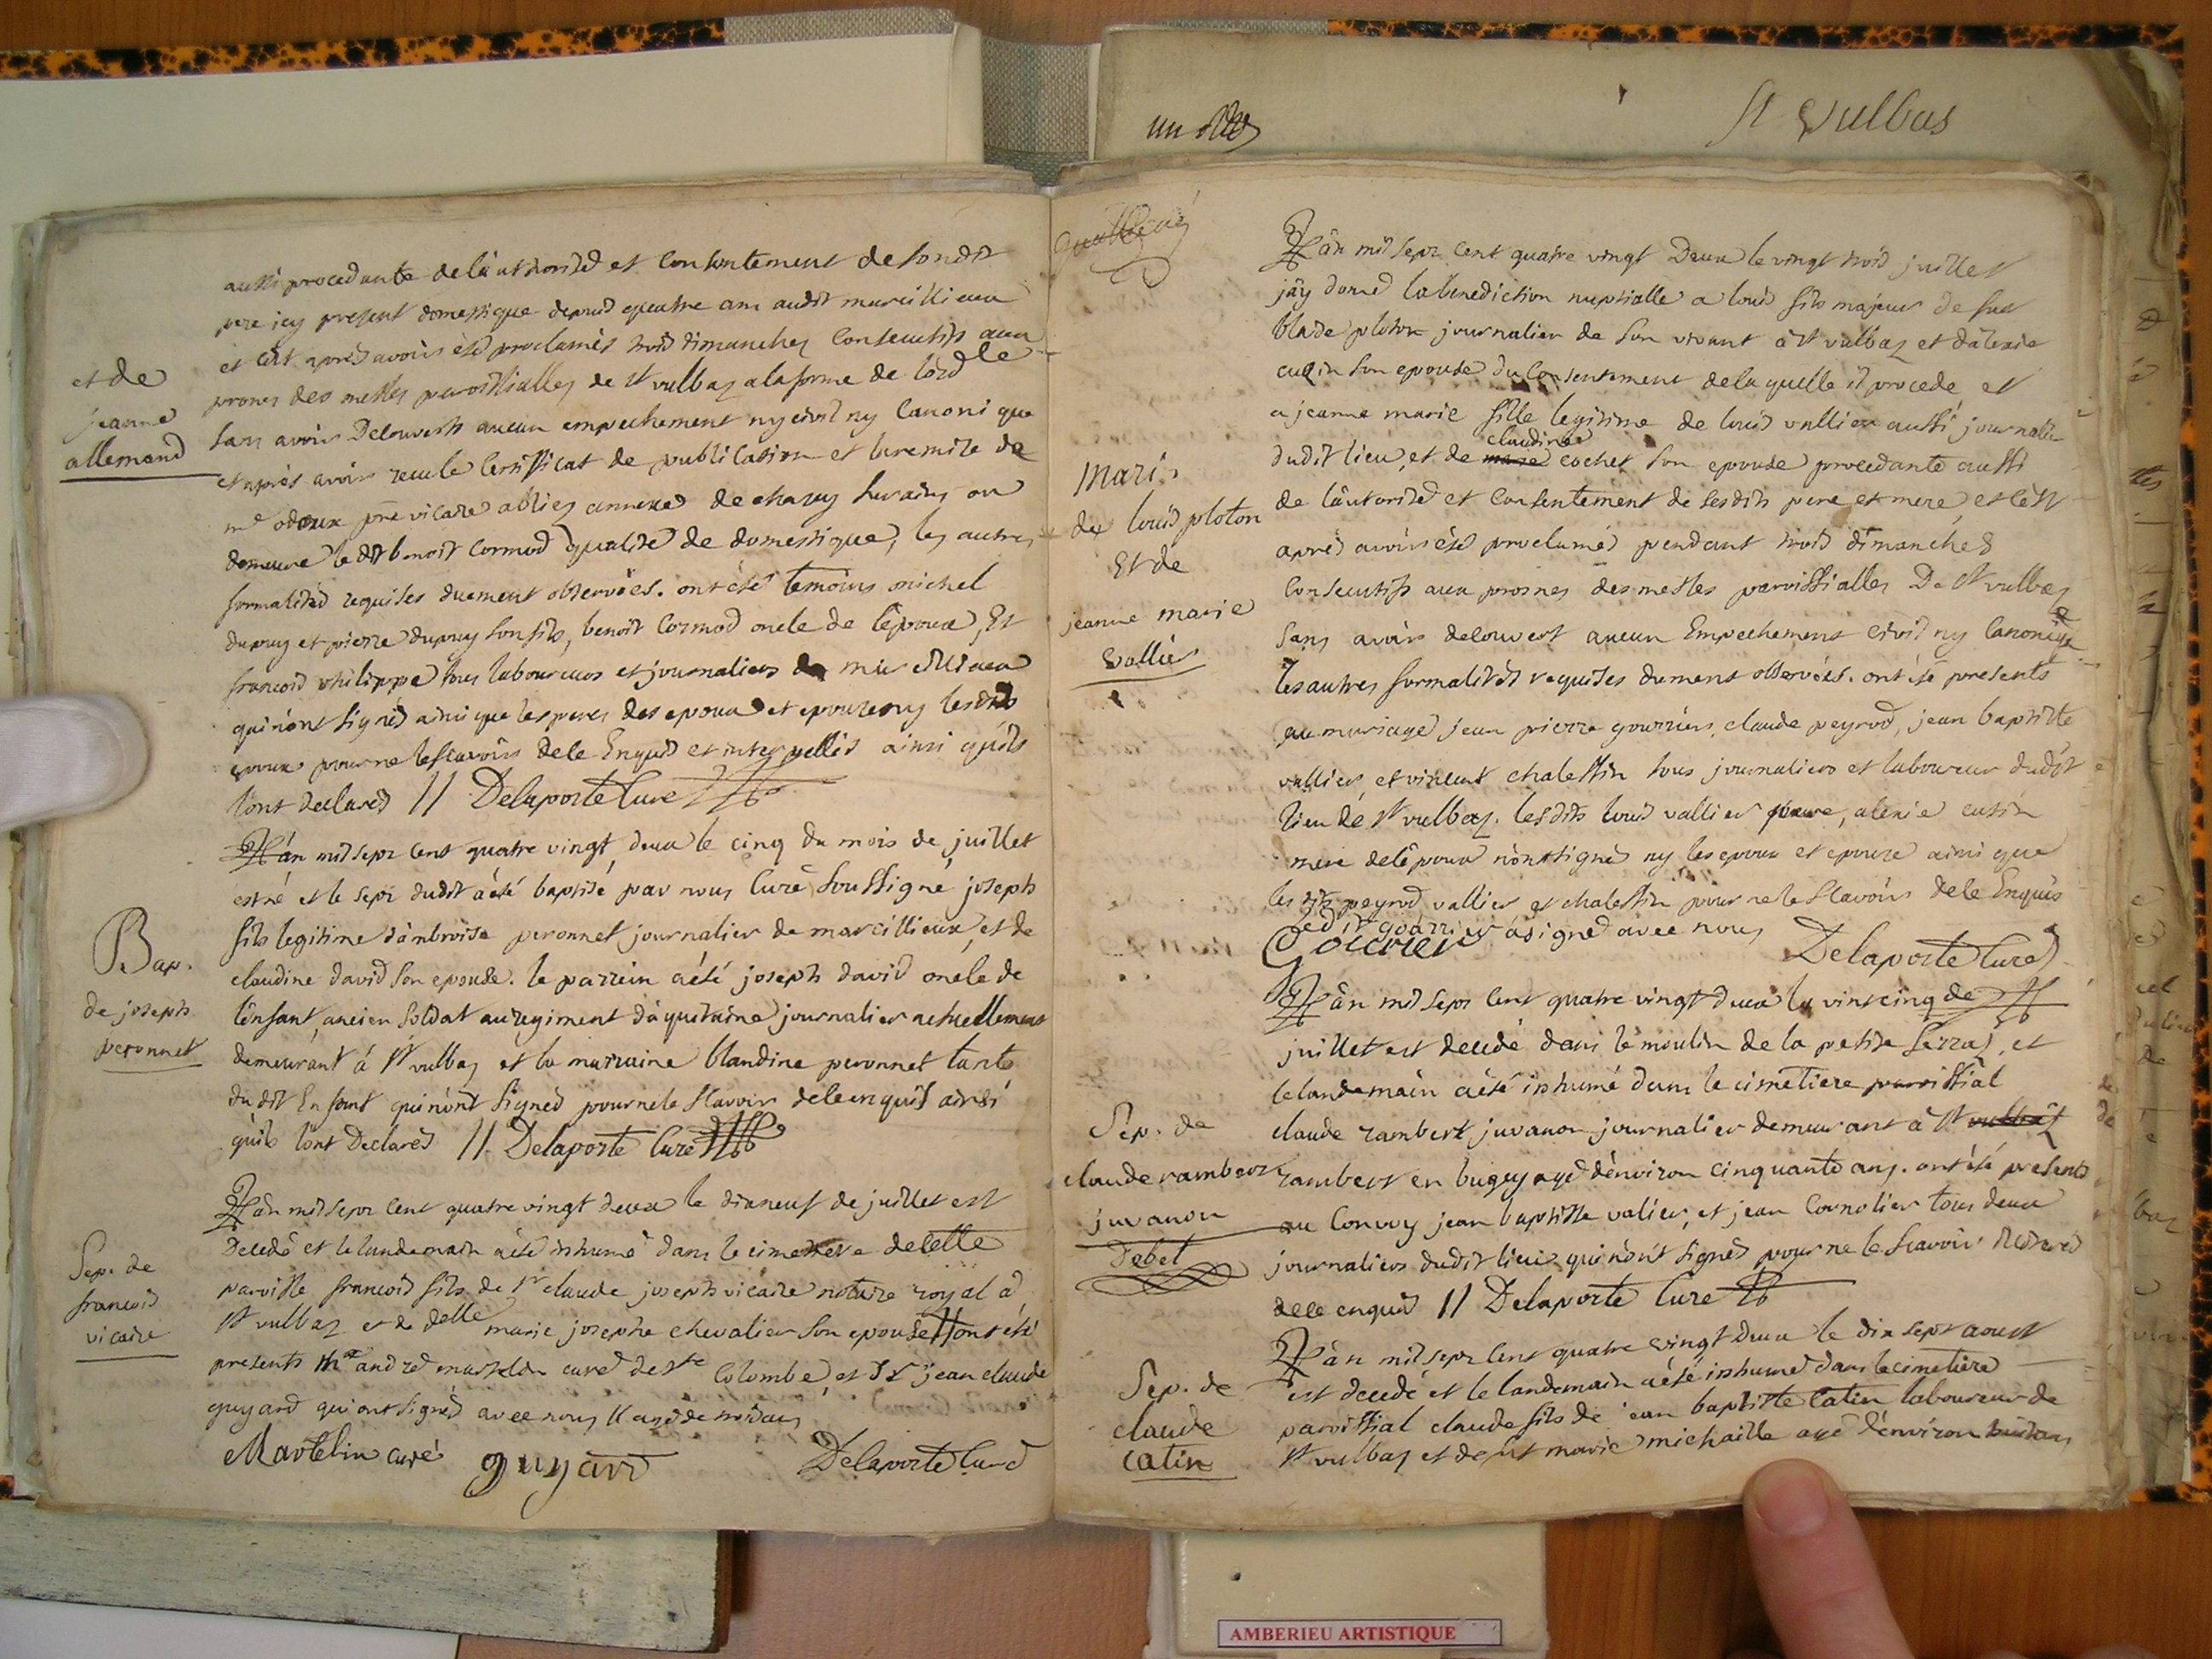 St Vulbas
et de
jeanne
allemand
aussi procedante de lauthorité et Consentement de sondit
pere icy present domestique depuis quatre ans audit marcillieux
et cest après avoirs été proclamés trois dimanches Consecutifs aux
prones des messes paroissialles de st vulbas a la forme de lord le
sans avoirs Decouverts aucun empechement ny civil ny Canonique
et après avoir recu le Certifficat de publication et la remise de
pre vicaire annexe de
demeure le dit benoit Cormod qualité de domestique, les autres
formalités requises duement observées. ont été temoins michel
dupuy et pierre dupuy son fils, benoit Cormod oncle de l'epoux, Et
francois philippe tous laboureurs et journaliers de marcillieux
qui nont signés ainsi que les peres des epoux et epouse ny lesdits
epoux pour ne le scavoirs de ce Enquis et interpellés ainsi quils
lont declarés // Delaporte Curé
Bap.
de joseph
peronnet
L'an mil sept cent quatre vingt deux le cinq du mois de juillet
est né et le sept dudit a été baptisé par nous Curé soussigné joseph
fils legitime d'ambroise peronnet journalier de marcillieux, et de
claudine david son epouse. le parrein a été joseph david oncle de
lenfant, ancien soldat au regiment d'aquitaine journalier actuellement
demeurant à st vulbas et la marraine blandine peronnet tante
du dit Enfant qui nont signés pour ne le scavoir de ce enquis ainsi
quils lont Declarés // Delaporte Curé
Sep. de
francois
vicaire
L'an mil sept cent quatre vingt deux le dixneuf de juillet est
Decedé et le landemain a été inhumé dans le cimetiere de cette
paroisse francois fils de sr claude joseph vicaire notaire royal à
st vulbas et de delle marie josephe chevalier son epouse ont été
presents mre andré martelin curé de ste Colombe, et sr jean claude
guyard qui ont signés avec nous
Martelin curé guyard Delaporte Curé
Mari.
de louis ploton
Et de
jeanne marie
vallier
L'an mil sept cent quatre vingt Deux le vingt trois juillet
jay donné la benediction nuptialle a louis fils majeur de feu
blaise ploton journalier de son vivant à st vulbas et d'alexie
cusin son epouse du Consentement de laquelle il procede, et
a jeanne marie fille legitime de louis vallier aussi journalier
dudit lieu, et de claudine cochet son epouse procedante aussi
de lautorité et Consentement de sesdits pere et mere et cest
après avoirs été proclamés pendant trois dimanches
Consecutifs aux prosnes des messes paroissialles De st vulbas
sans avoirs decouvert aucun Empechement civil ny Canonique
les autres formalités requises dument observées. ont été presents
au mariage jean pierre gourrier, claude peyrod, jean baptiste
vallier, et vincent chalessin tous journaliers et laboureur dudit
lieu de st vulbas. lesdits louis vallier pere, alexie cusin
mere de lepoux n'ont signés ny les epoux et epouse ainsi que
les dits peyrod vallier et chalessin pour ne le scavoirs de ce Enquis
ledit gourrier a signé avec nous
Gourrier Delaporte Curé
Sep. de
claude rambert
juvanon
Debet
L'an mil sept cent quatre vingt deux le vint cinq de
juillet est decedé dans le moulin de la petite serraz, et
le landemain a été inhumé dans le cimetiere paroissial
claude rambert juvanon journalier demeurant à st
rambert en bugey agé d'environ cinquante ans. ont été presents
au Convoy jean baptiste valier, et jean Cornolier tous deux
journaliers dudit lieu qui nont signés pour ne le scavoir
de ce enquis // Delaporte Curé
Sep. de
claude
catin
L'an mil sept cent quatre vingt Deux le dix sept aoust
est decedé et le landemain a été inhumé dans le cimetiere
paroissial claude fils de jean baptiste Catin laboureur de
st vulbas et de fut marie michaille agé d'environ huit ans
AMBERIEU ARTISTIQUE